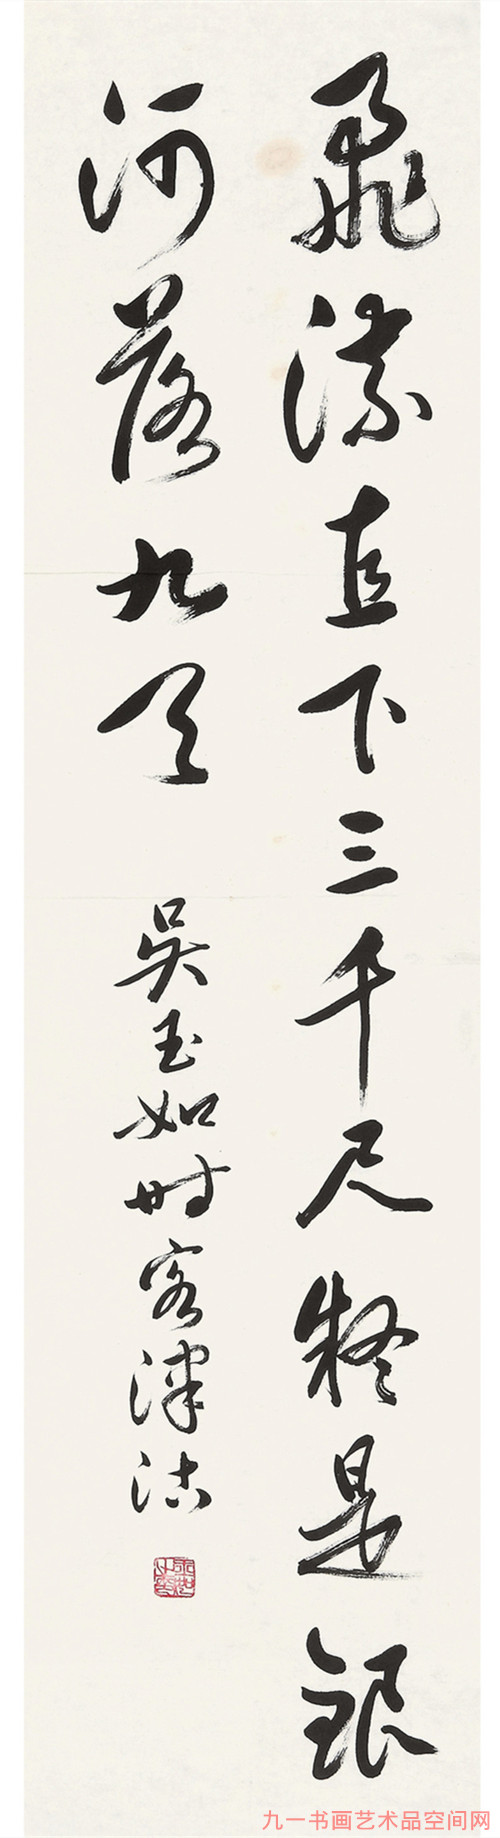 飛流直下三千尺疑是銀
河落九天
吴玉如时客津沽
九一书画艺术品空间网